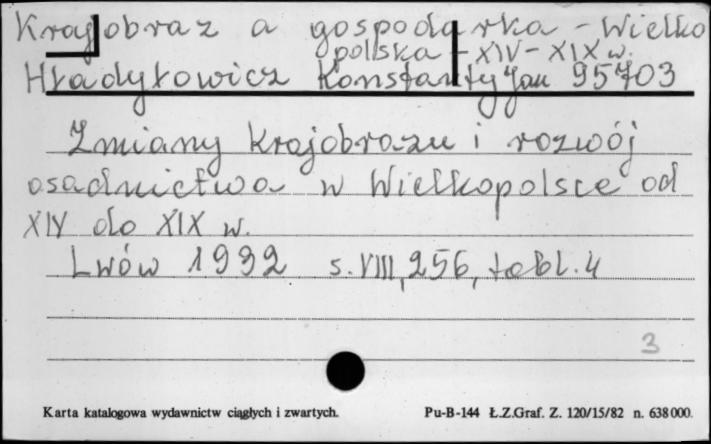 Krajobraz a gospodarka - Wielko
polska - XIV - XIX w.
Hładyłowicz Konstanty Jan 95703
Zmiany krajobrazu i rozwój
osadnictwa w Wielkopolsce od
XIV do XIX w.
Lwów 1932 s. VIII, 256, tabl. 4
3
Karta katalogowa wydawnictw ciągłych i zwartych. Pu-B-144 Ł.Z.Graf. Z. 120/15/82 n. 638000.